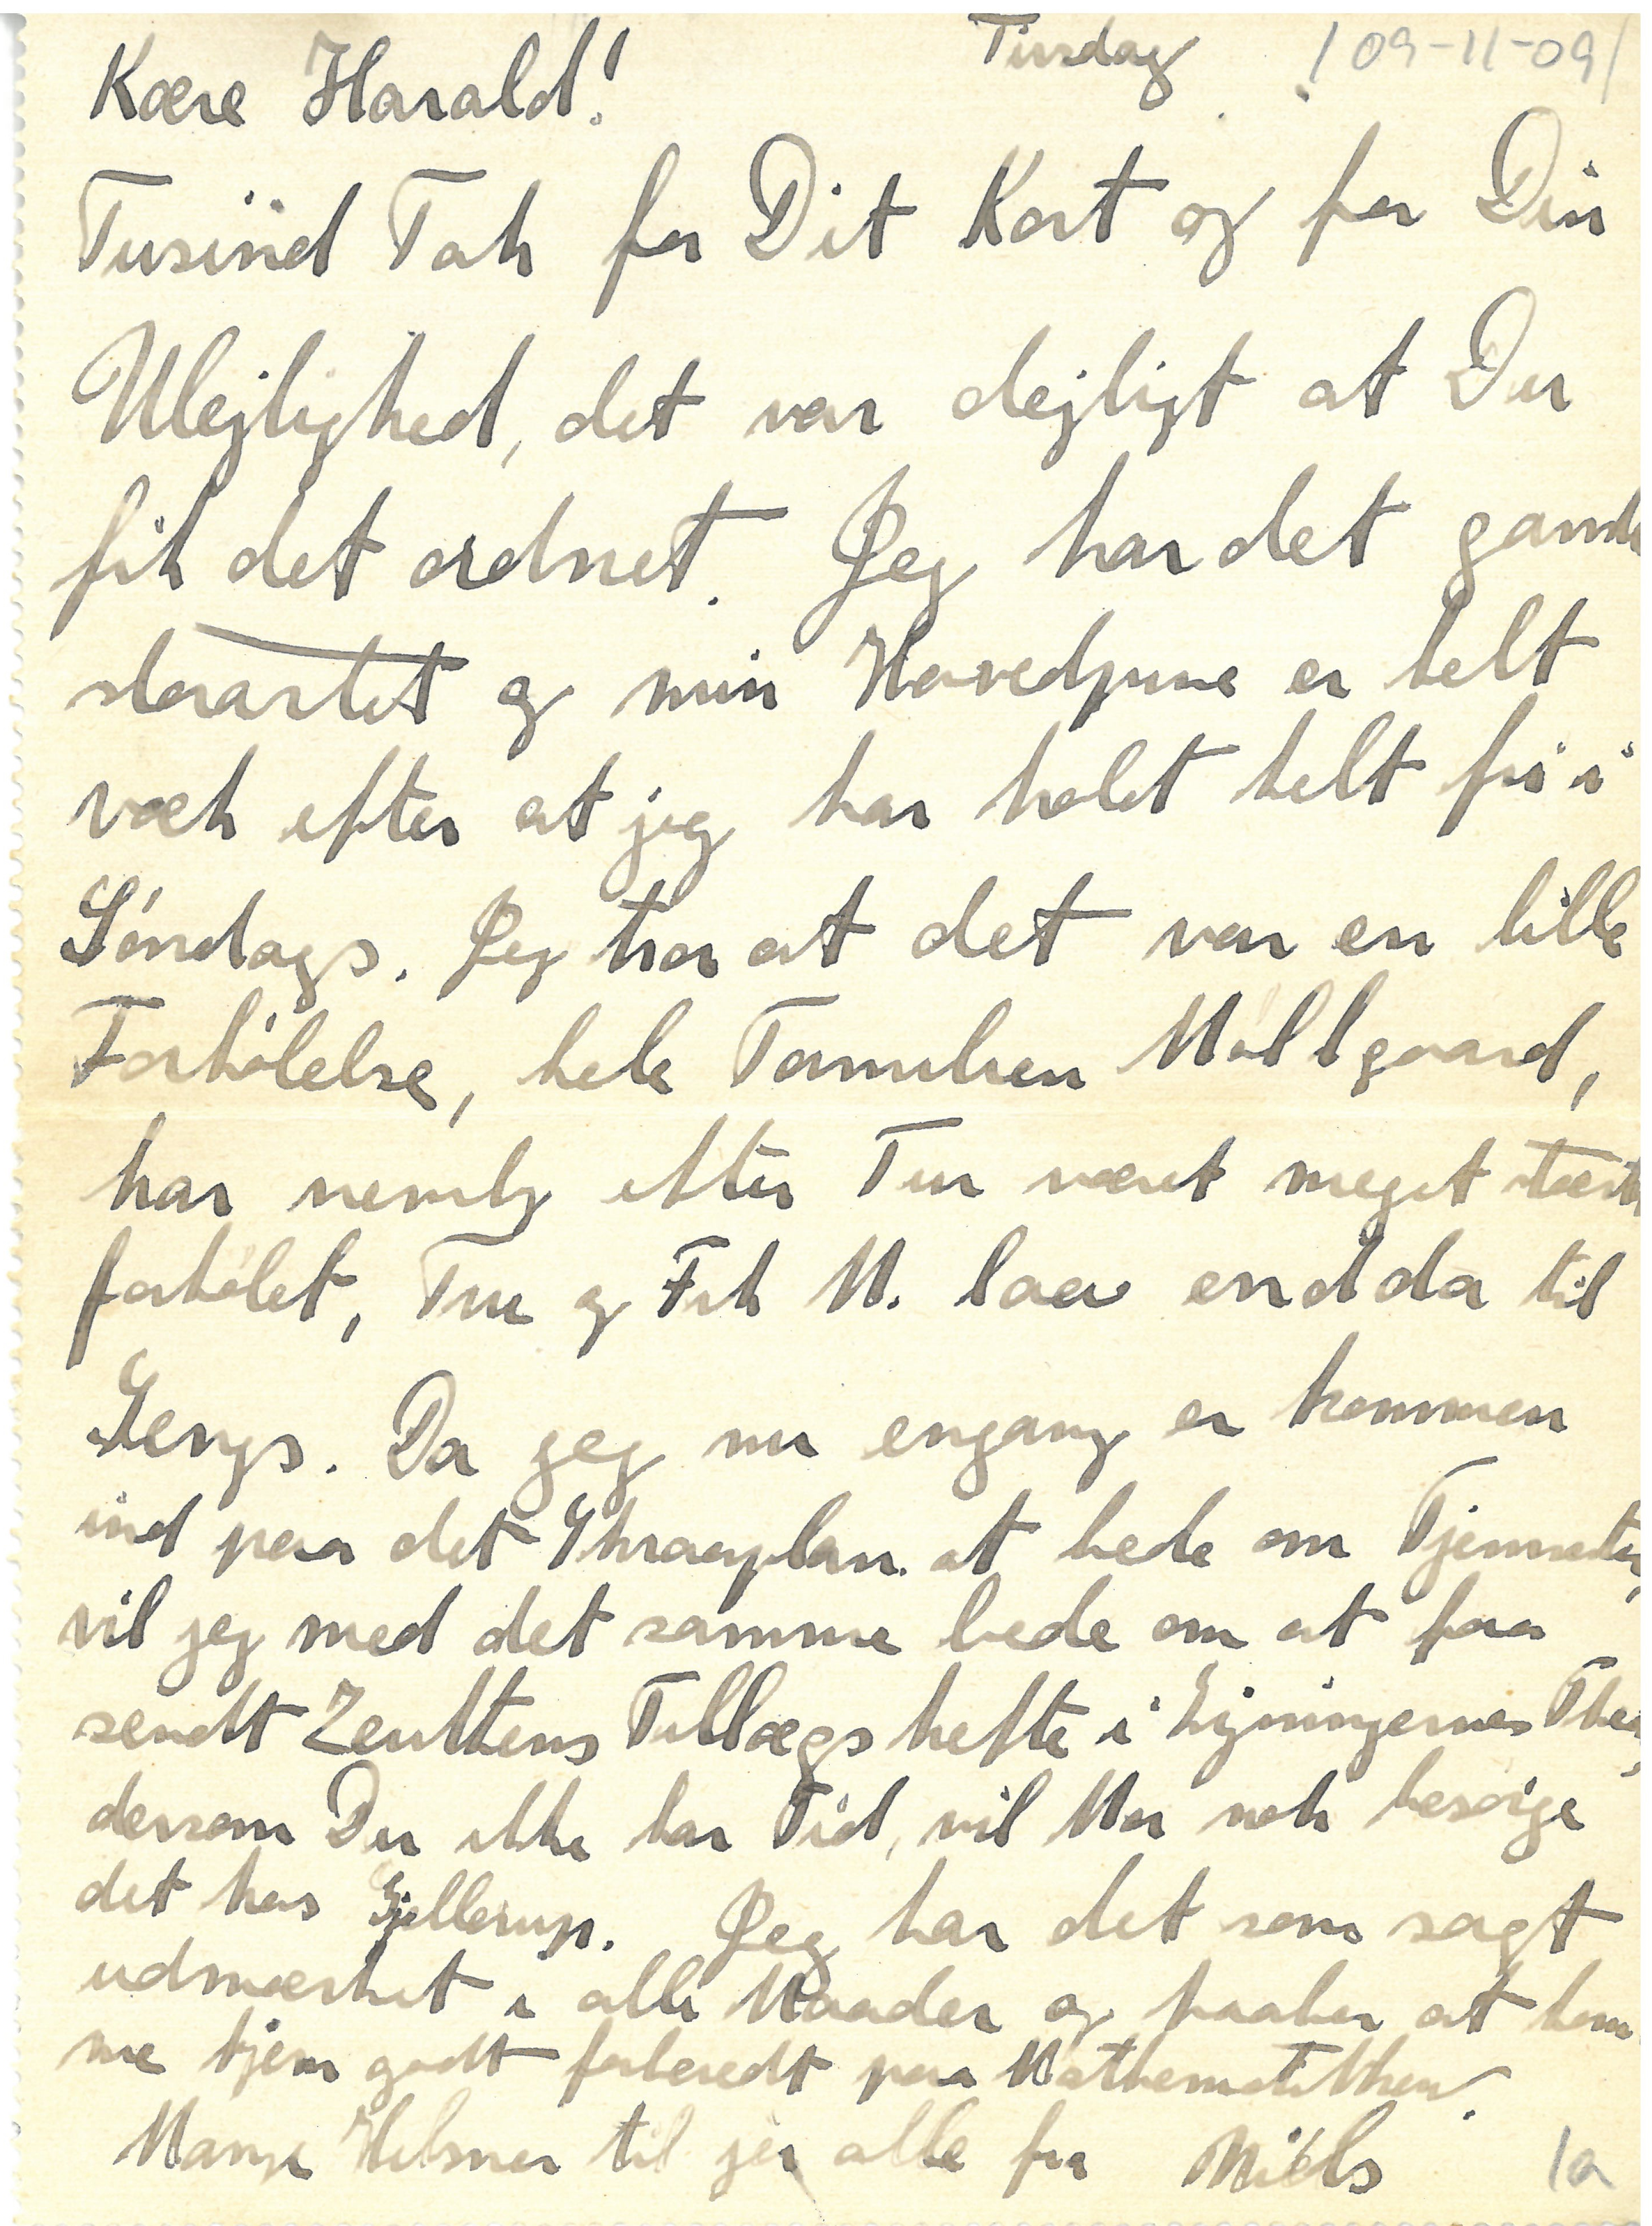 Tirsdag /09-11-09/
Kære Harald!
Tusind Tak for Dit Kort og for Din
Ulejlighed, det var dejligt at Du
fik det ordnet. Jeg har det gansk
storartet og min Hovedpine er helt
væk efter at jeg har holdt helt fri i
Søndags. Jeg tror at det var en lille
Forkølelse, hele Familien Møllgaard,
har nemlig efter Tur været meget stærk
forkølet, Fru og Frk M. laa endda til
Sengs. Da jeg nu engang er kommen
ind paa det Skraaplan at bede om Tjenester,
vil jeg med det samme bede om at faa
sendt Zeuthens Tillægshefte i Ligningernes Theo,
dersom Du ikke har Tid, vil Mor nok besørge
det hos Gjellerup. Jeg har det som sagt
udmærket i alle Maader og haaber at kom
me hjem godt forberedt paa Mathematikken.
Mange Hilsner til jer alle fra Niels
1a